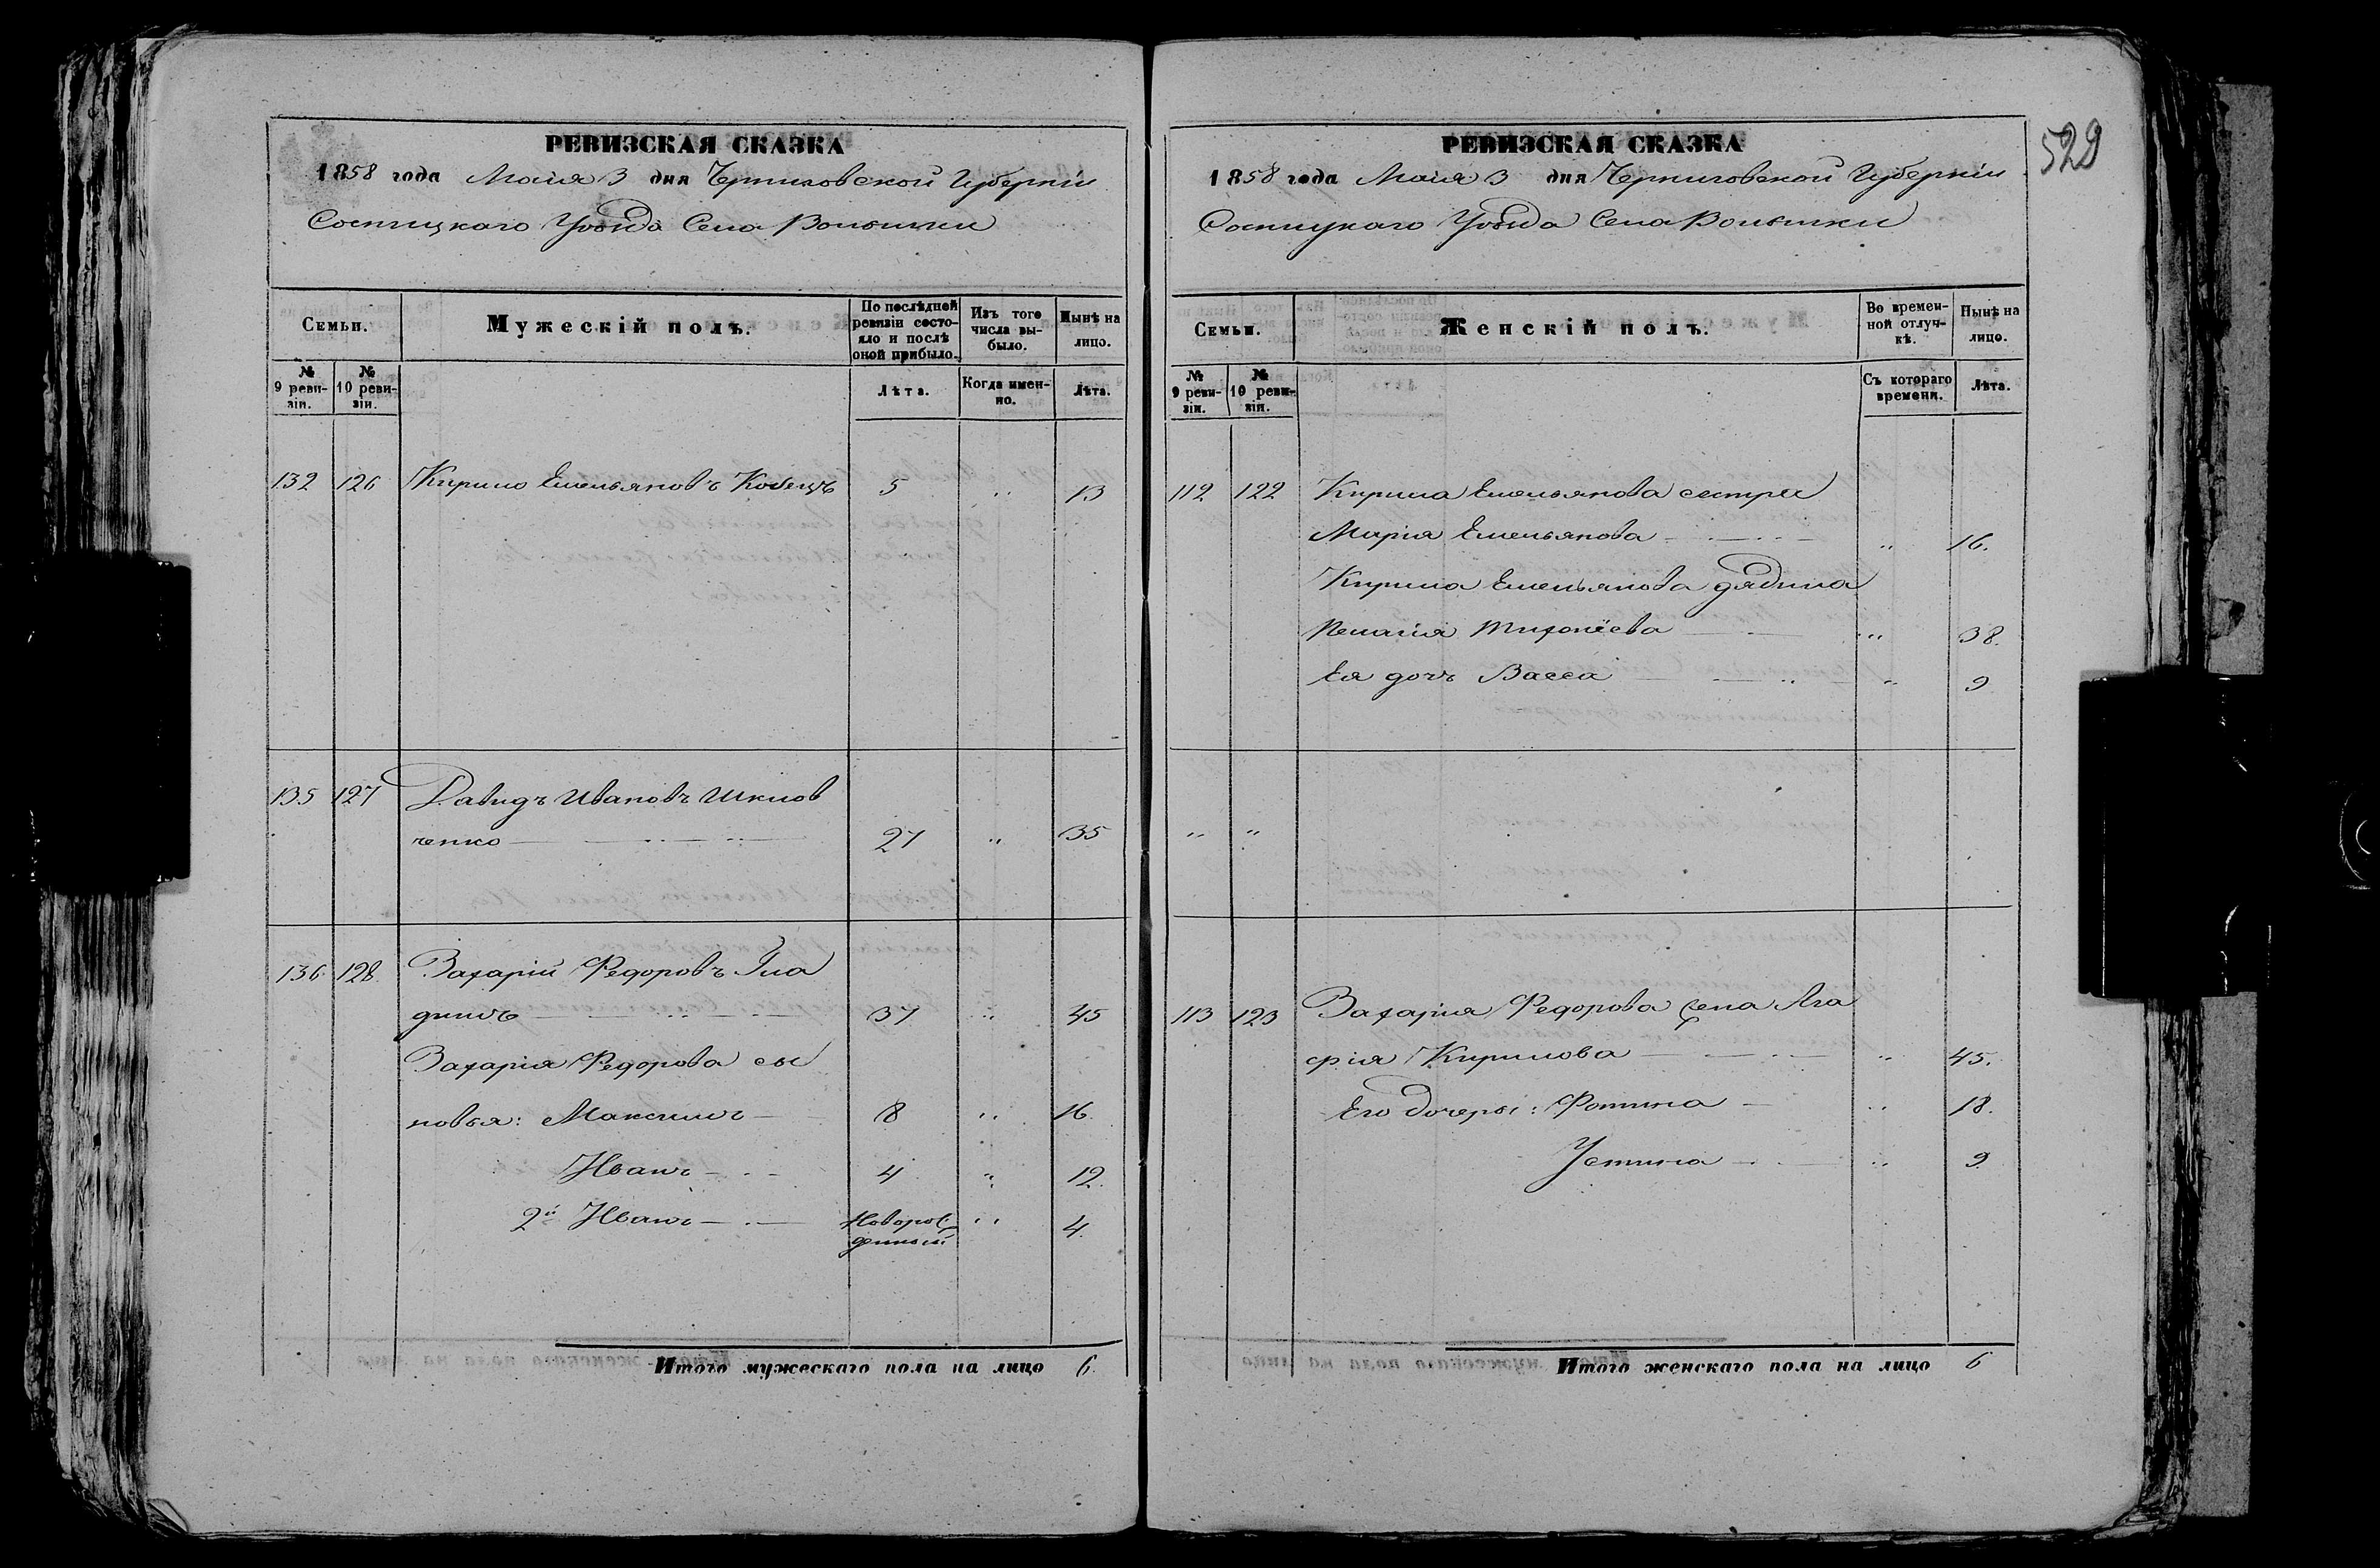 529
РЕВИЗСКАЯ СКАЗКА
1858 года Маія 3 дня Черниговской Губерніи
Сосницкаго Уѣзда Села Волынки
Семьи.
Мужескій полъ.
По послѣдней ревизіи состояло и послѣ оной прибыло.
Изъ того числа выбыло.
Нынѣ на лицо.
№ 9 ревизіи.
№ 10 ревизіи.
Лѣта.
Когда именно.
Лѣта.
132 126 Кирило Емельяновъ 5 " 13
135 127 Давидъ Ивановъ Шклов
ченко 27 " 35
136 128 Захарій Федоровъ Гла
дишъ 37 " 45
Захарія Федорова сы
новья: Максимъ 8 " 16.
Иванъ 4 " 12.
2й Иванъ Новорож
денный " 4.
Итого мужескаго пола на лицо 6.
РЕВИЗСКАЯ СКАЗКА
1858 года Маія 3 дня Черниговской Губерніи
Сосницкаго Уѣзда Села Волынки
Семьи.
Женскій полъ.
Во временной отлучкѣ.
Нынѣ на лицо.
№ 9 ревизіи.
№ 10 ревизіи.
Съ котораго времени.
Лѣта.
112 122 Кирила Емельянова сестра
Марія Емельянова " 16.
Кирила Емельянова дядина
Пелагія " 38.
Ея дочь Васса " 9
" "
113 123 Захарія Федорова жена Ага
фія Кирилова " 45.
Его дочеры: Фотина " 18.
Устина " 9.
Итого женскаго пола на лицо 6